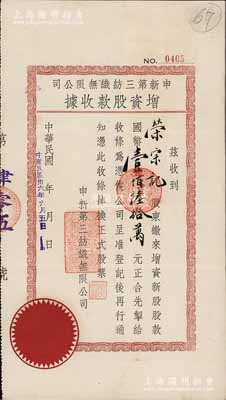 上海陽明拍賣
67
NO. 0405
申新第三紡織無限公司
增資股款收據
茲收到
榮宗記 股東繳來增資新股股款
國幣壹佰陸拾萬元正合先掣給
收條為憑俟公司呈准登記後再行通
知憑此收條掉換正式股票
申新第三紡織無限公司
中華民國 年 月 日
第肆零五號